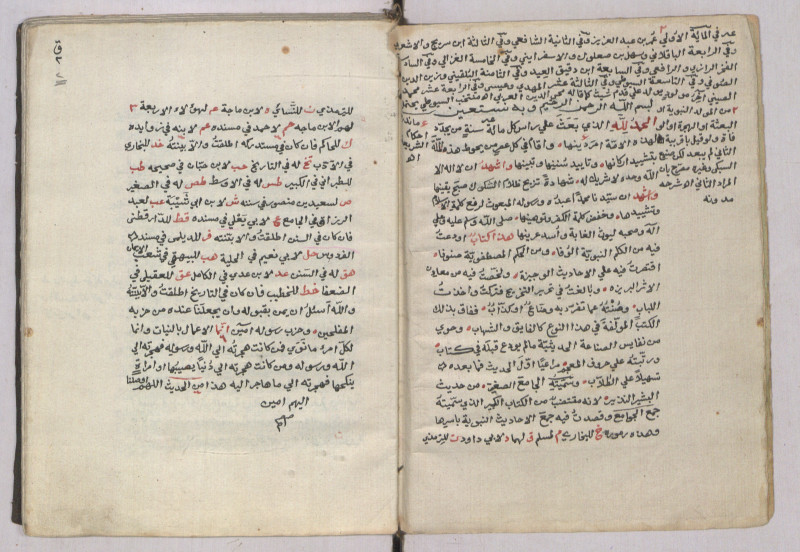 عد في المأية الأولي عمر بن عبد العزيز وفي الثانية الشافعي وفي الثالثة ابن سريج والاشعري
وفي الرابعة الباقلاني وسهل بن صعلوك والاسفرايني وفي الخامسة الغزالي وفي السادسة
الفخر الرازي والرافعي وفي السابعة ابن دقيق العيد وفي الثامنة البلقيني وزين الدين
وفي التاسعة السيوطي وفي الثالثة عشر المهدي وعيسى وفي الرابعة عشر محمد
بسم الله الرحمن الرحيم وبه نستعين
الحمد لله الذي بعث علي راس كل مائة سنة من يجدد
لهذه الامة امر دينها واقام في كل عصر من يحوط هذه الملة
بتشييد اركانها وتاييد سننها وتبينها واشهد ان لا اله الا
الله وحده لا شريك له شهادة تزيح ظلام الشكوك صبح يقينها
واشهد ان سيدنا محمدا عبده ورسوله المبعوث لرفع كلمة الاسلام
وتشييدها وخفض كلمة الكفر وتوهينها صلي الله وسلم عليه وعلي
آله وصحبه ليوث الغابة واسد عرينها هذا كتاب اودعت
فيه من الكلم النبوية الوفا ومن الحكم المصطفوية صنوفا
اقتصرت فيه علي الاحاديث الوجيزة ولخصت فيه من معادن
الاثر ابريزه وبالغت في تحرير التخريج فتركت القشر واخذت
اللباب وصنته عما تفرد به وضاع او كذاب ففاق بذلك
الكتب المولفة في هذا النوع كالفايق والشهاب وحوي
من نفايس الصناعة الحديثية ما لم يودع قبله في كتاب
ورتبته علي حروف المعجم مراعيا اول الحديث فما بعده
تسهيلا علي الطلاب وسميته الجامع الصغير من حديث
البشير النذير لانه مقتضب من الكتاب الكبير الذي سميته
جمع الجوامع وقصدت فيه جمع الاحاديث النبوية باسرها
وهذه رموزه خ للبخاري م لمسلم ق لهما د لابي داود ت للترمذي
للترمذي ن للنسائي ه لابن ماجة عم لهؤلاء الاربعة ٣
لهم الا ابن ماجه حم لاحمد في مسنده عم لابنه في زوايده
ك للحاكم فان كان في مستدركه اطلقت والا بينته خد للبخاري
في الادب تخ له في التاريخ حب لابن حبان في صحيحه طب
للطبراني في الكبير طس له في الاوسط طص له في الصغير
ص لسعيد بن منصور في سننه ش لابن ابي شيبة عب لعبد
الرزاق في الجامع ع لابي يعلي في مسنده قط للدارقطني
فان كان في السنن اطلقت والا بينته فر للديلمي في مسند
الفردوس حل لابي نعيم في الحلية هب للبيهقي في شعب الايمان
هق له في السنن عد لابن عدي في الكامل عق للعقيلي في
الضعفا خط للخطيب فان كان في التاريخ اطلقت والا بينته
والله أسئل ان يمن بقبوله وان يجعلنا عنده من حزبه
المفلحين وحزب رسوله امين انما الاعمال بالنيات وانما
لكل امرء ما نوي فمن كانت هجرته الي الله ورسوله فهجرته الي
الله ورسوله ومن كانت هجرته الي دنيا يصيبها او امراة
ينكحها فهجرته الي ما هاجر اليه
اللهم امين